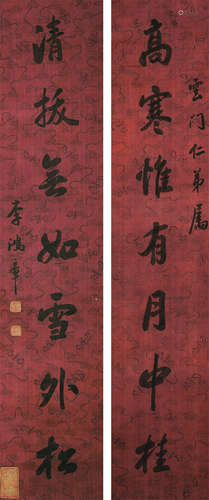 雲門仁弟屬
高寒惟有月中桂
清拔無如雪外松
李鴻章